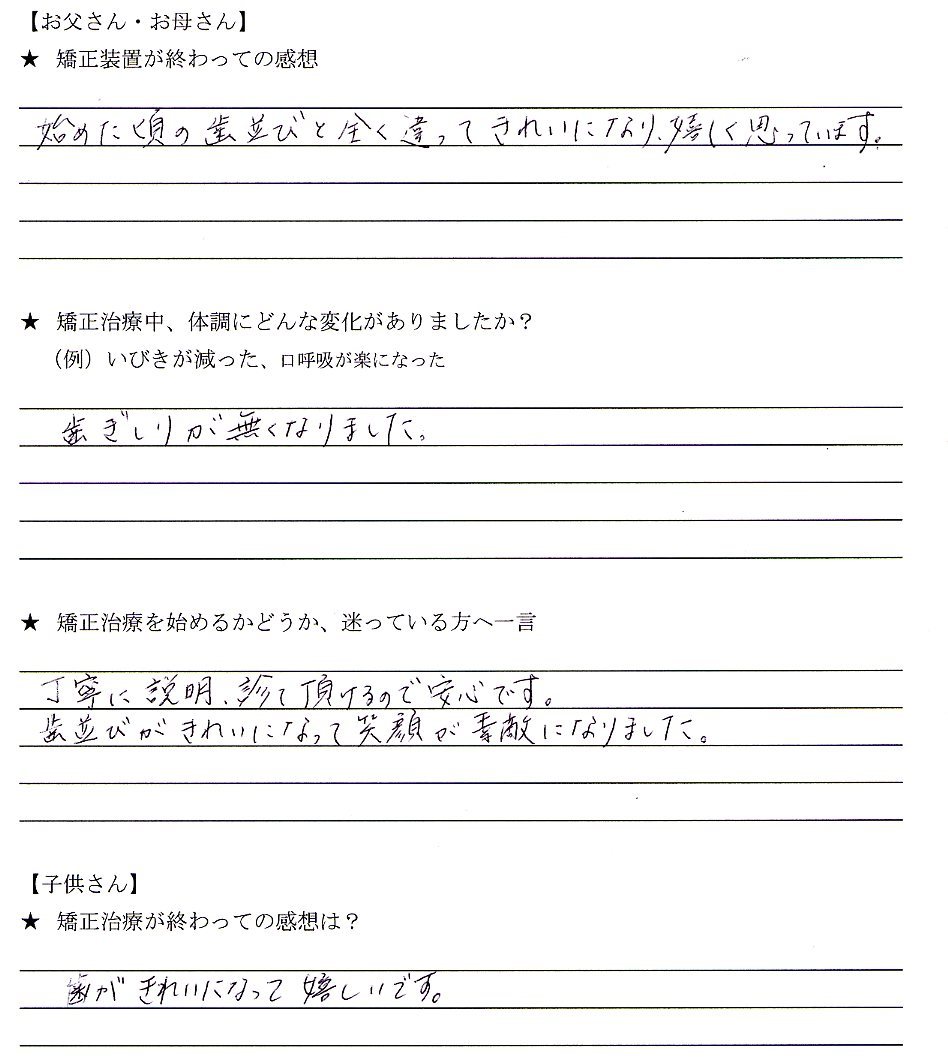 【お父さん・お母さん】
★ 矯正装置が終わっての感想
始めた頃の歯並びと全く違ってきれいになり、嬉しく思っています。
★ 矯正治療中、体調にどんな変化がありましたか？
（例）いびきが減った、口呼吸が楽になった
歯ぎしりが無くなりました。
★ 矯正治療を始めるかどうか、迷っている方へ一言
丁寧に説明、診て頂けるので安心です。
歯並びがきれいになって笑顔が素敵になりました。
【子供さん】
★ 矯正治療が終わっての感想は？
歯がきれいになって嬉しいです。